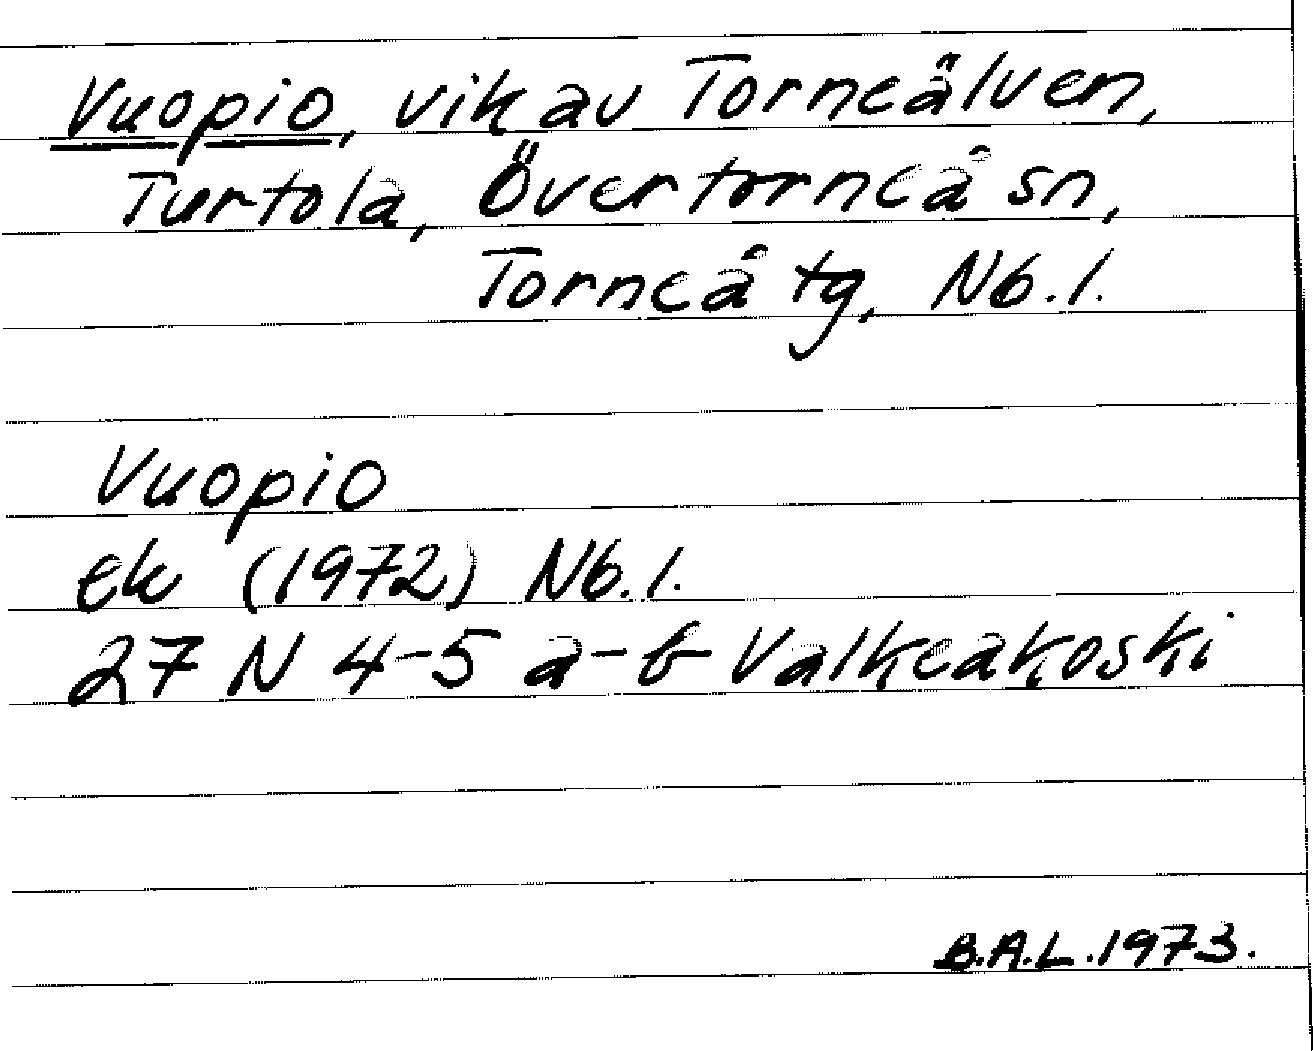 Vuopio, vik av Torneälven,
Turtola, Övertorneå sn,
Torneå tg, Nb.l.
Vuopio
Ek (1972) Nb.l.
27 N 4-5 a-b Valkeakoski
B.A.L. 1973.